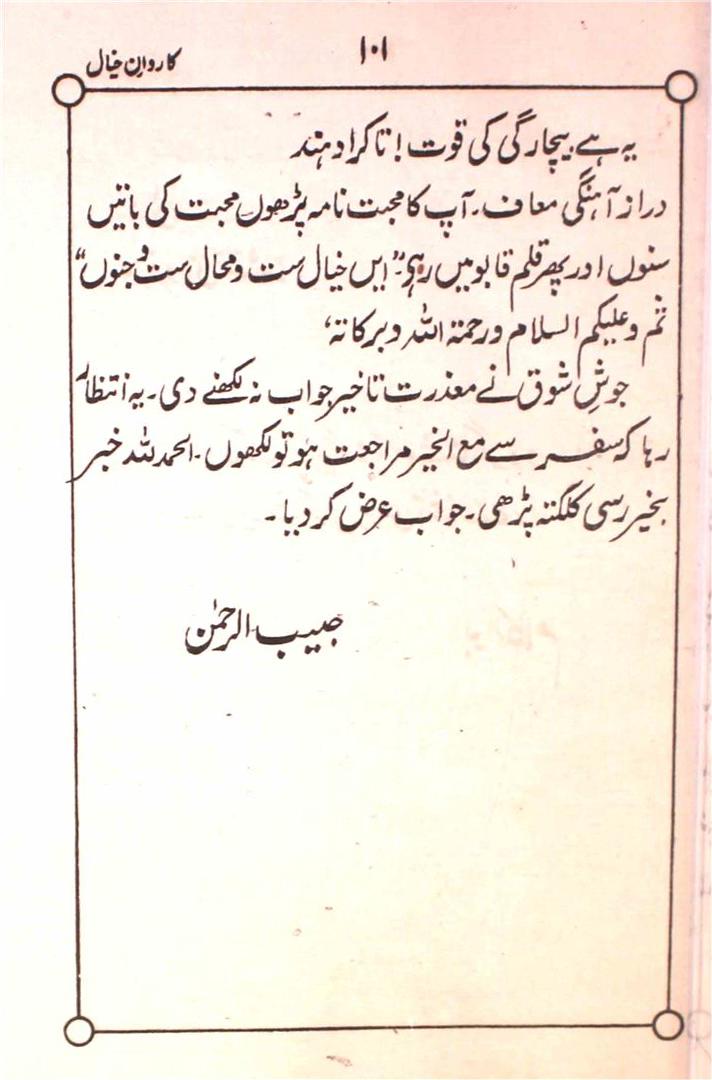 کاروانِ خیال
۱۰۱
یہ ہے بیچارگی کی قوت! تا کرا دہند
دراز آہنگی معاف۔ آپ کا محبت نامہ پڑھوں محبت کی باتیں
سنوں اور پھر قلم قابو میں رہے۔ "ایں خیال ست و محال ست و جنوں"
ثم وعلیکم السلام ورحمتہ اللہ وبرکاتہ،
جوشِ شوق نے معذرت تاخیر جواب نہ لکھنے دی۔ یہ انتظار
رہا کہ سفر سے مع الخیر مراجعت ہو تو لکھوں۔ الحمدللہ خبر
بخیر رسی کلکتہ پڑھی۔ جواب عرض کر دیا۔
حبیب الرحمٰن